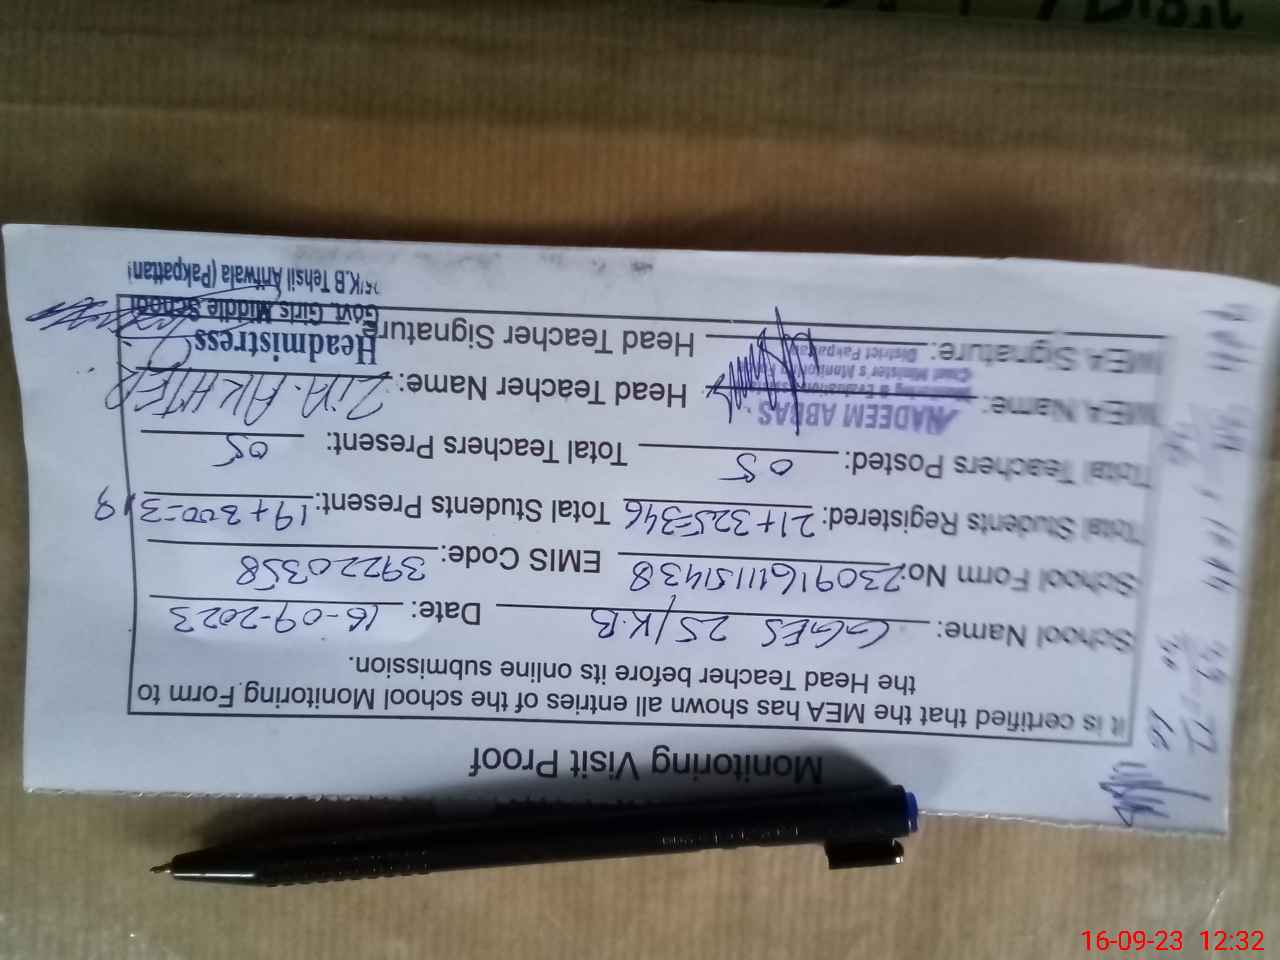 Monitoring Visit Proof
It is certified that the MEA has shown all entries of the school Monitoring Form to
the Head Teacher before its online submission.
School Name: GGES 25/K.B Date: 16-09-2023
School Form No: EMIS Code: 39220358
Total Students Registered: 21+325=346 Total Students Present: 19+300=319
Total Teachers Posted: 05 Total Teachers Present: 05
MEA Name: NADEEM ABBAS Head Teacher Name: AKHTER
Monitoring & Evaluation
Chief Minister's Monitoring
District Pakpattan
MEA Signature: Head Teacher Signature
Headmistress
Govt. Girls Middle School
25/K.B Tehsil Arifwala (Pakpattan)
16-09-23 12:32